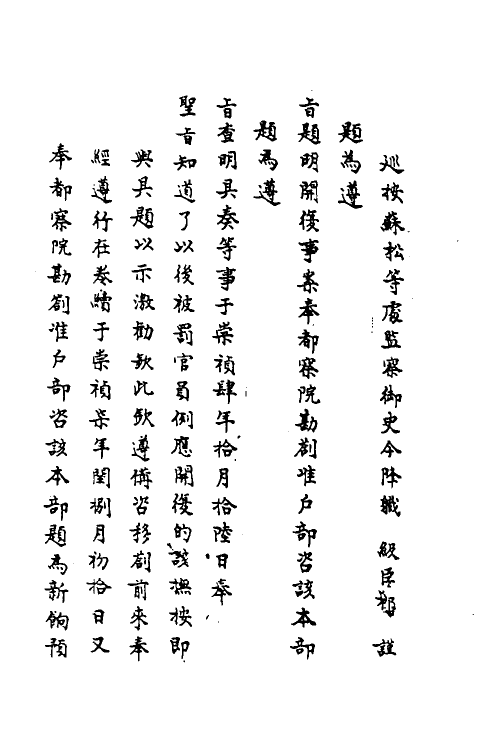 巡按蘇松等處監察御史今降職 級臣祁 謹
題為遵
旨題明開復事案奉都察院勘劄准戶部咨該本部
題為遵
旨查明具奏等事于崇禎肆年拾月拾陸日奉
聖旨知道了以後被罰官員例應開復的該撫按即
與具題以示激勸欽此欽遵備咨移劄前來奉
經遵行在卷續于崇禎柒年閏捌月初拾日又
奉都察院勘劄准戶部咨該本部題為新餉預